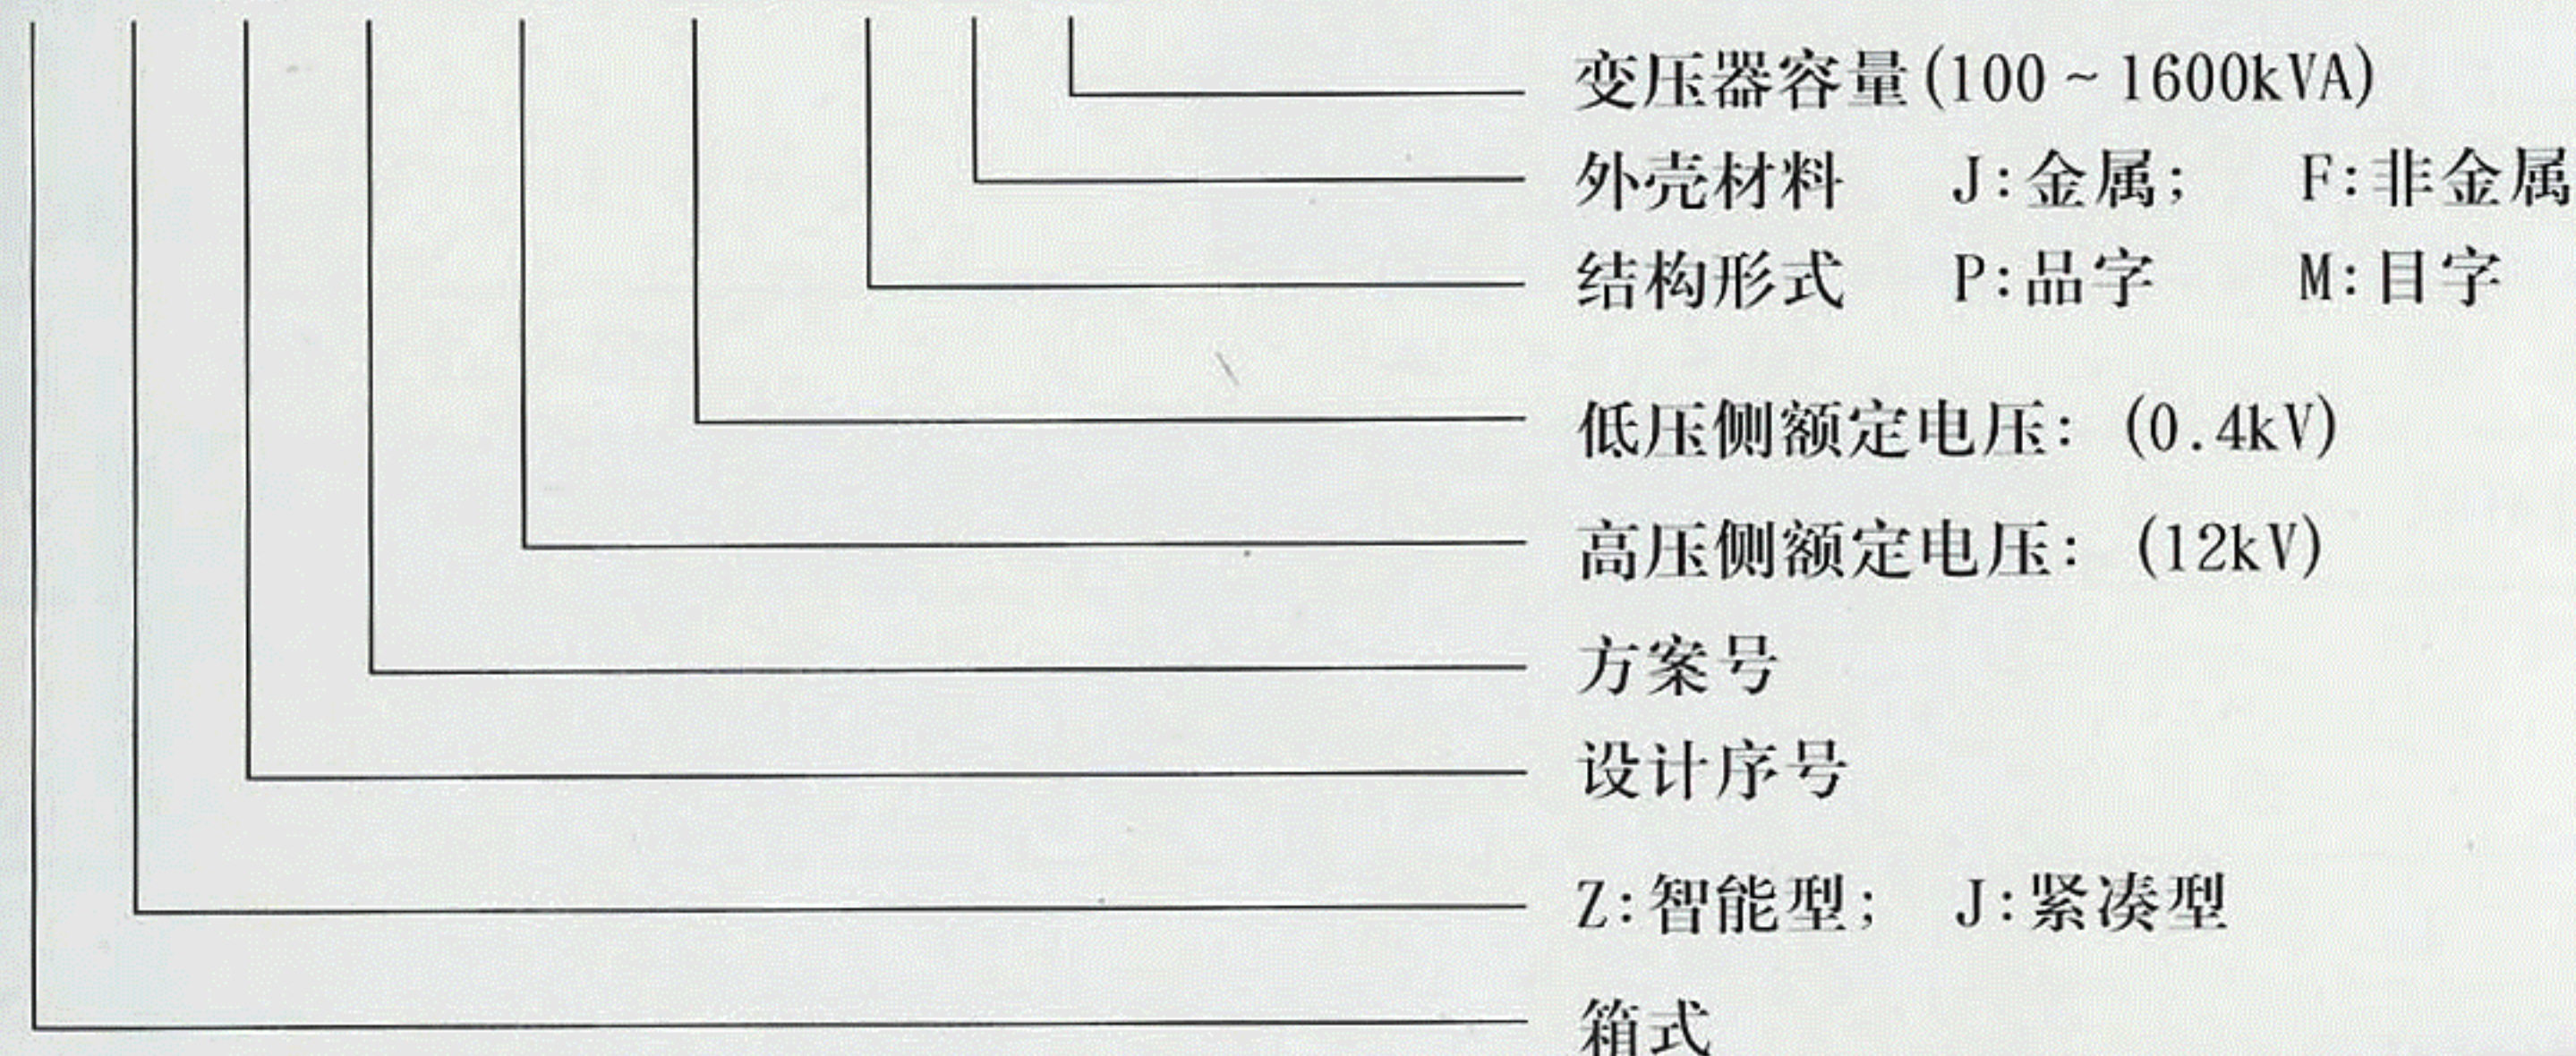 变压器容量(100~1600kVA)
外壳材料 J:金属; F:非金属
结构形式 P:品字 M:目字
低压侧额定电压: (0.4kV)
高压侧额定电压: (12kV)
方案号
设计序号
Z:智能型; J:紧凑型
箱式